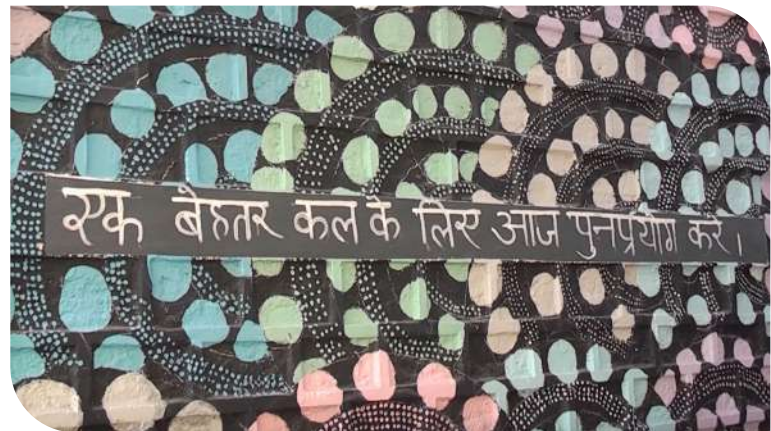 एक बेहतर कल के लिए आज पुनप्रयोग करें।